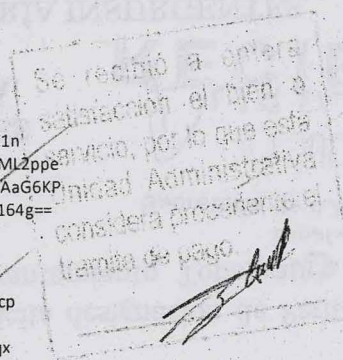 Se recibió a entera
satisfacción el bien o
servicio, por lo que esta
Unidad Administrativa
considera procedente el
tramite de pago.
1n
ML2ppe
AaG6KP
164g==
cp
qx